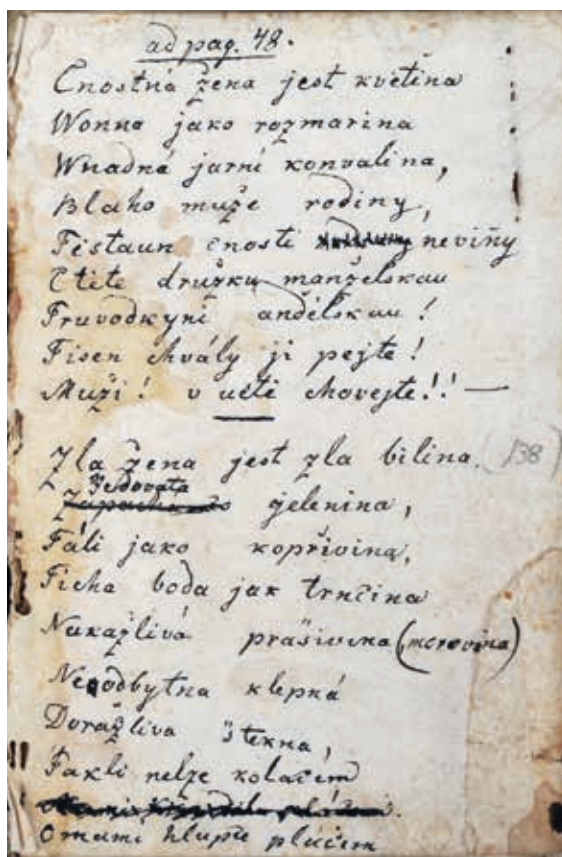 ad pag. 48.
Cnostná žena jest květina
Wonna jako rozmarina
Wnadná jarní konvalina,
Blaho muže rodiny,
Pěstaun cnosti neviňy
Ctěte družku manželskau
Pruvodkyni andělskau!
Pisen chvály ji pejte!
Muži! v uctě chovejte!! —
Zla žena jest zla bilina. (138)
Jedovata
jelenina,
Páli jako kopřivina,
Picha boda jak trnčina
Nakažlivá prašivina (mrcovina)
Neodbytna klepná
Doražliva štekna,
Pakli nelze kolačem
Omami hlupce pláčem